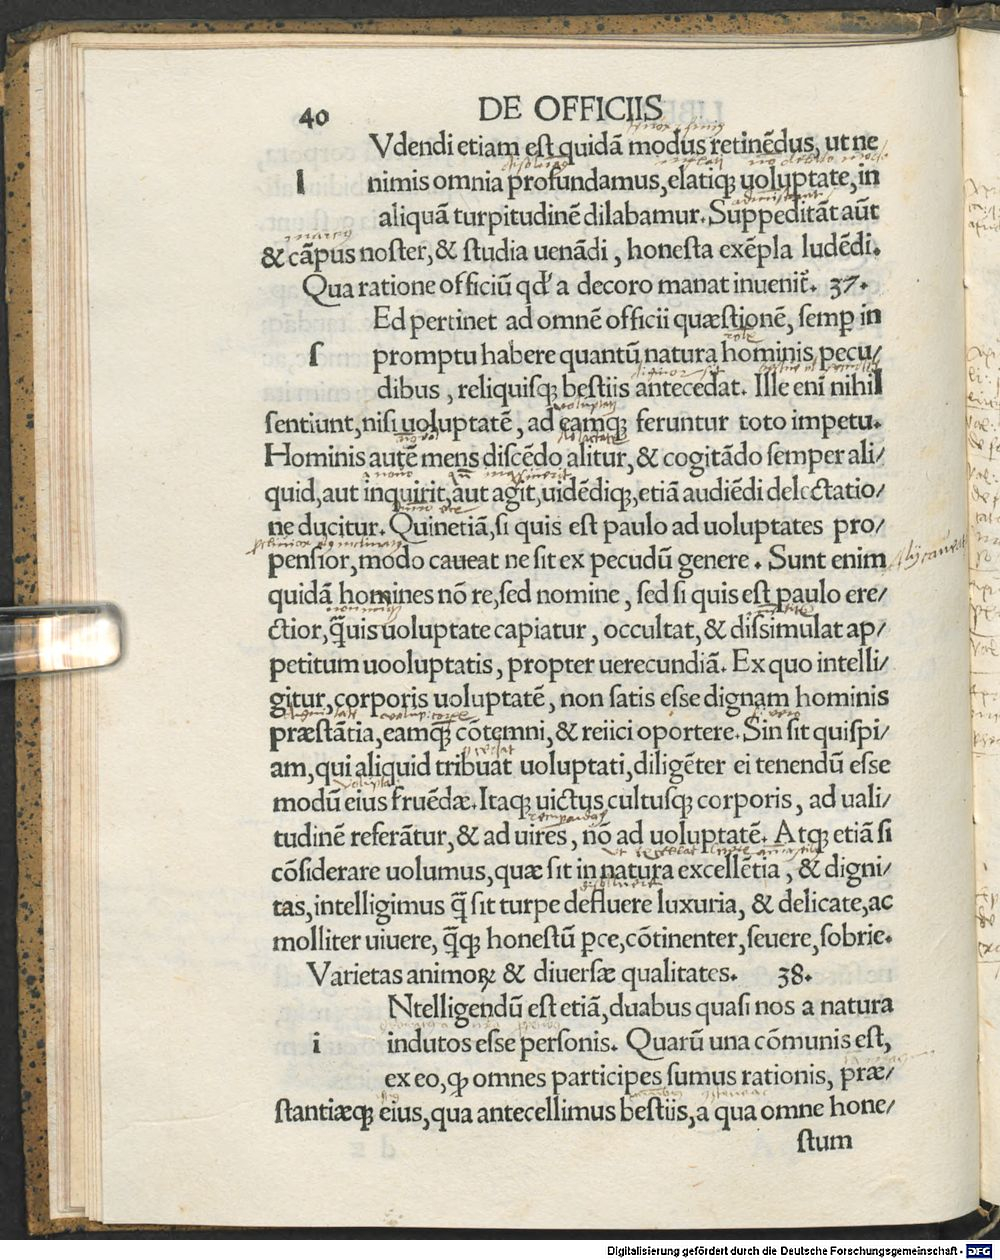 40 DE OFFICIIS
Vdendi etiam est quidā modus retinēdus, ut ne
l nimis omnia profundamus, elatiq; uoluptate, in
aliquā turpitudinē dilabamur. Suppeditāt aūt
& cāpus noster, & studia uenādi, honesta exēpla ludēdi.
Qua ratione officiū qđ a decoro manat inuenit̄. 37.
Ed pertinet ad omnē officii quæstionē, semꝑ in
ſ promptu habere quantū natura hominis pecu/
dibus, reliquisq; bestiis antecedat. Ille enī nihil
sentiunt, nisi uoluptatē, ad eamq; feruntur toto impetu.
Hominis autē mens discēdo alitur, & cogitādo semper ali/
quid, aut inquirit, aut agit, uidēdiq;, etiā audiēdi delectatio/
ne ducitur. Quinetiā, si quis est paulo ad uoluptates pro/
pensior, modo caueat ne sit ex pecudū genere. Sunt enim
quidā homines nō re, sed nomine, sed si quis est paulo ere/
ctior, q̄uis uoluptate capiatur, occultat, & dissimulat ap/
petitum uooluptatis, propter uerecundiā. Ex quo intelli/
gitur, corporis uoluptatē, non satis esse dignam hominis
præstātia, eamq; cōtemni, & reiici oportere. Sin sit quispi/
am, qui aliquid tribuat uoluptati, diligēter ei tenendū esse
modū eius fruēdæ. Itaq; uictus cultusq; corporis, ad uali/
tudinē referātur, & ad uires, nō ad uoluptatē. Atq; etiā si
cōsiderare uolumus, quæ sit in natura excellētia, & digni/
tas, intelligimus q̄ sit turpe defluere luxuria, & delicate, ac
molliter uiuere, q̄q; honestū ꝑce, cōtinenter, seuere, sobrie.
Varietas animoꝝ & diuersæ qualitates. 38.
Ntelligendū est etiā, duabus quasi nos a natura
i indutos esse personis. Quarū una cōmunis est,
ex eo, ꝙ omnes participes sumus rationis, præ/
stantiæq; eius, qua antecellimus bestiis, a qua omne hone/
stum
Digitalisierung gefördert durch die Deutsche Forschungsgemeinschaft - DFG